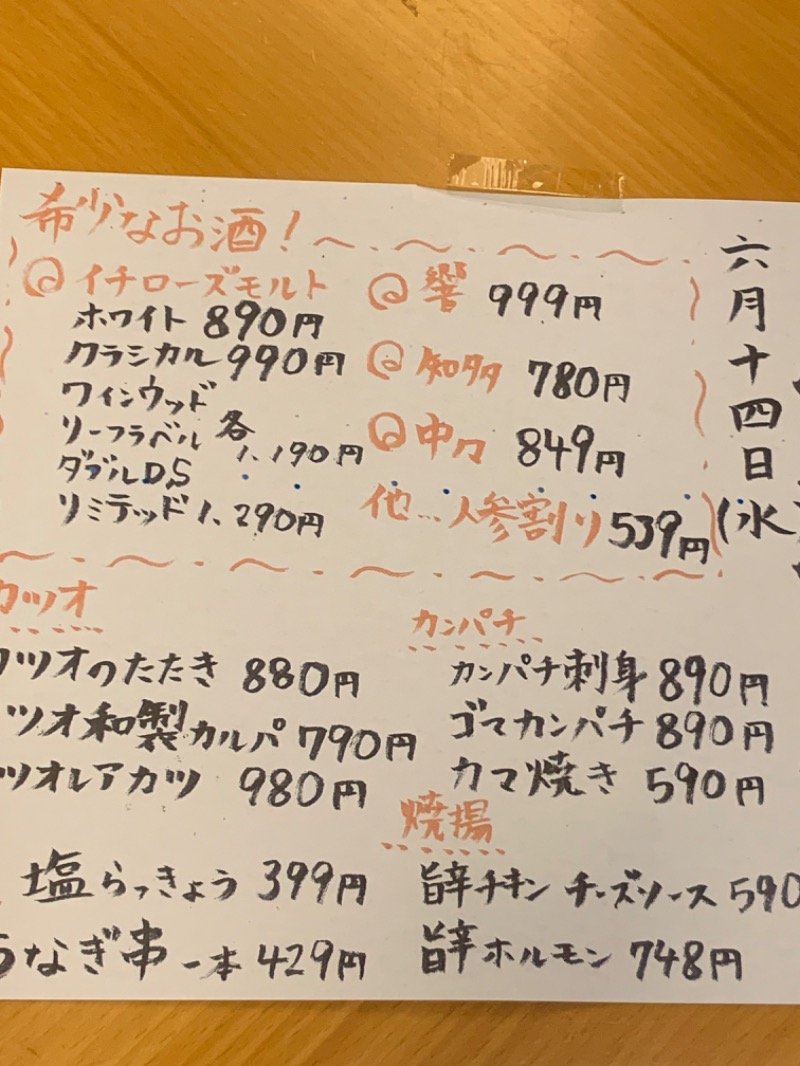 六月十四日(水
希少なお酒！
@イチローズモルト
ホワイト 890円
クラシカル 990円
ワインウッド
リーフラベル 各
1,190円
ダブルD,S
リミテッド 1,290円
@響 999円
@知多 780円
@中々 849円
他…人参割り 539円
カツオ
カツオのたたき 880円
ツオ和製カルパ 790円
ツオレアカツ 980円
塩らっきょう 399円
うなぎ串 一本 429円
カンパチ
カンパチ刺身 890円
ゴマカンパチ 890円
カマ焼き 590円
焼揚
旨辛チキン チーズソース 590
旨辛ホルモン 748円